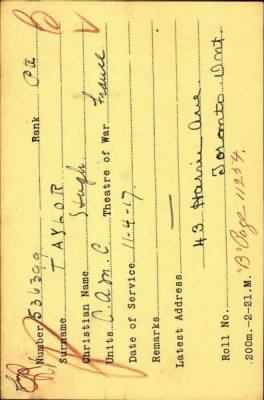 Number 536399 Rank Pte B
Surname TAYLOR
Christian Name Hugh
Units C.A.M.C Theatre of War France
Date of Service 11-4-17
Remarks —
Latest Address
43 Harris Ave
Toronto Ont.
Roll No. "B" Page 11254.
200m.-2-21.M.